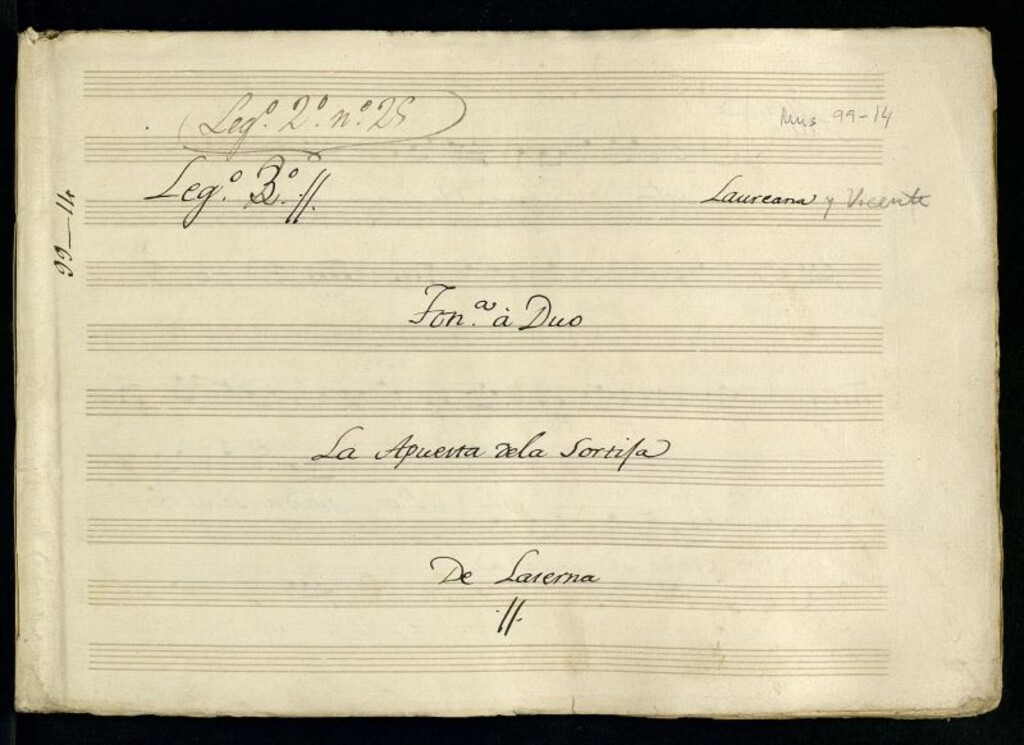 Leg.º 2.º n.º 25
Mus 99-14
Leg.º 3.º //.
Laureana y Vicente
99-14
Ton.ª à Duo
La Apuesta dela Sortija
De Laserna
//.